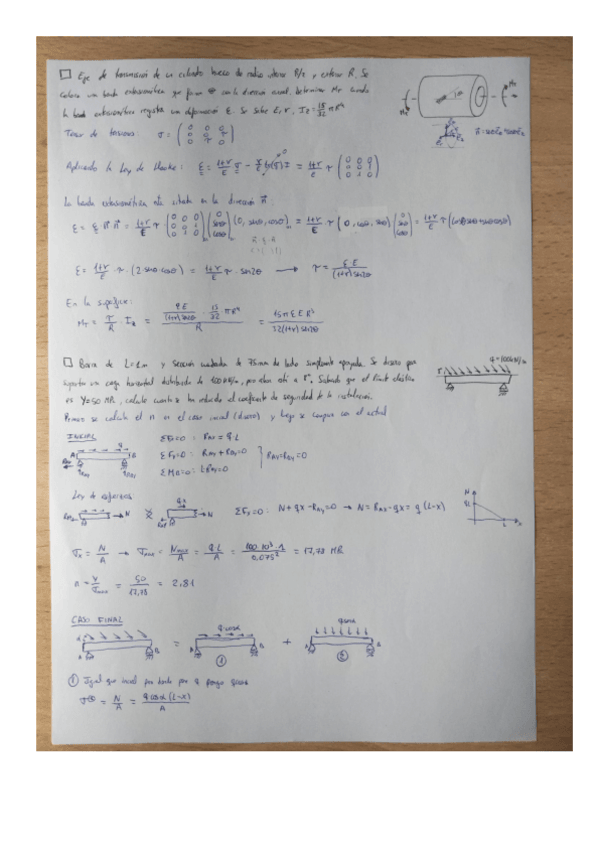 Eje de transmisión de un cilindro hueco de radio interno R/2 y exterior R. Se
coloca una banda extensométrica que forma θ con la dirección axial. Determinar MT cuando
la banda extensométrica registra una deformación ε. Se sabe E, ν, I0 = 15/32 π R⁴
Tensor de tensiones: σ = (0 0 0; 0 0 τ; 0 τ 0)
Aplicando la Ley de Hooke: ε = (1+ν)/E σ - ν/E tr(σ) I = (1+ν)/E τ (0 0 0; 0 0 1; 0 1 0)
La banda extensométrica está situada en la dirección n:
ε = (1+ν)/E · τ · (2·senθ·cosθ) = (1+ν)/E · τ · sen2θ → τ = εE/((1+ν)sen2θ)
En la superficie:
MT = τ/R · I0 = = 15π ε E R³/(32(1+ν)sen2θ)
Barra de L=1m y sección cuadrada de 75mm de lado simplemente apoyada. Se diseñó para
soportar una carga horizontal distribuida de 100 kN/m, pero ellas está a Sabiendo que el límite elástico
es Y=50 MPa, calcule cuánto se ha reducido el coeficiente de seguridad de la instalación.
Primero se calcula el n en el caso inicial (diseño) y luego se compara con el actual
INICIAL
ΣFx=0 : RAx = q·L
ΣFy=0 : RAy + RBy=0
ΣMA=0 : L·RBy=0
RAy=RBy=0
Ley de esfuerzos
ΣFx=0 : N + qx - RAx=0 → N = RAx - qx = q (L-x)
σx = N/A → σmax = Nmax/A = q·L/A = 100·10³·1/0,075² = 17,78 MPa
n = Y/σmax = 50/17,78 = 2,81
CASO FINAL
q cosα
q senα
A
B
= +
1
2
1 Igual que inicial pero
σ① = N/A = q cosα (L-x)/A